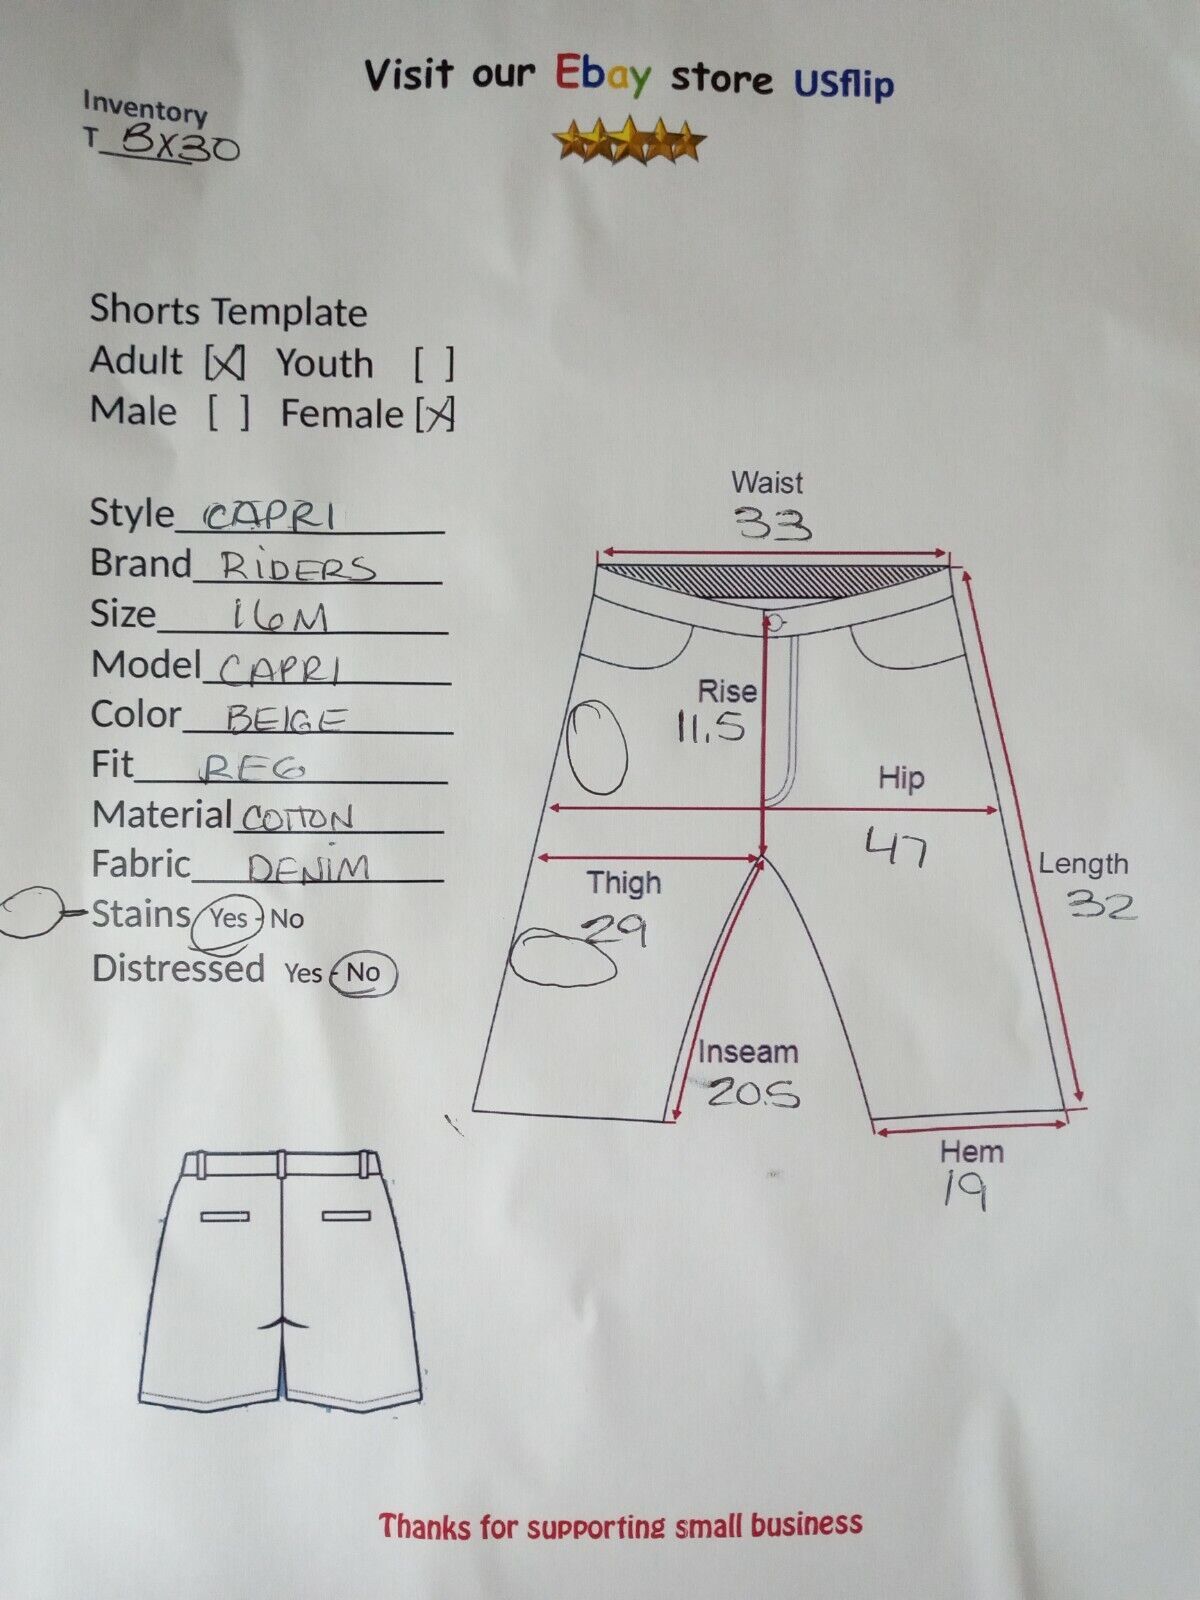 Visit our Ebay store USflip
Inventory
T BX30
Shorts Template
Adult [X] Youth [ ]
Male [ ] Female [X]
Style CAPRI
Brand RIDERS
Size 16M
Model CAPRI
Color BEIGE
Fit REG
Material COTTON
Fabric DENIM
Stains Yes - No
Distressed Yes - No
Waist
33
Rise
11.5
Hip
47
Thigh
29
Length
32
Inseam
20.5
Hem
19
Thanks for supporting small business